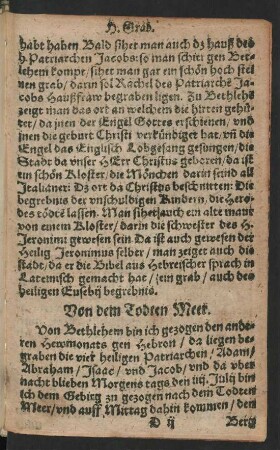 H. Grab.
habt haben Bald sihet man auch dz hauß des
h. Patriarchen Jacobs: so man schier gen Bet-
lehem kompt / sihet man gar ein schön hoch stei
nen grab / darin sol Rachel des Patriarchē Ja-
cobs Haußfraw begraben ligen. Zu Bethlehē
zeigt man das ort an welchem die hirten gehü-
tet / da jnen der Engel Gottes erschienen / vnd
jnen die geburt Christi verkündiget hat / vn̄ die
Engel das Englisch Lobgesang gesungen / die
Stadt da vnser HErr Christus geboren / da ist
ein schön Kloster / die Mönchen darin seind all
Italianer: Dz ort da Christus beschnitten: Die
begrebnis der vnschuldigen Kindern / die Hero-
des tödtē lassen. Man sihet auch ein alte maur
von einem Kloster / darin die schwester des H.
Jeronimi gewesen sein Da ist auch gewesen der
Heilig Jeronimus selber / man zeiget auch die
stadt / da er die Bibel aus Hebreischer sprach in
Lateinisch gemacht hat / sein grab / auch des
heiligen Eusebij begrebnis.
Von dem Todten Meer.
Von Bethlehem bin ich gezogen den ande-
ren Hewmonats gen Hebron / da liegen be-
graben die vier heiligen Patriarchen / Adam /
Abraham / Isaac / vnd Jacob / vnd da vber
nacht blieben Morgens tags den iij. Julij bin
ich dem Gebirg zu gezogen nach dem Todten
Meer / vnd auff Mittag dahin kommen / den
D ij Berg